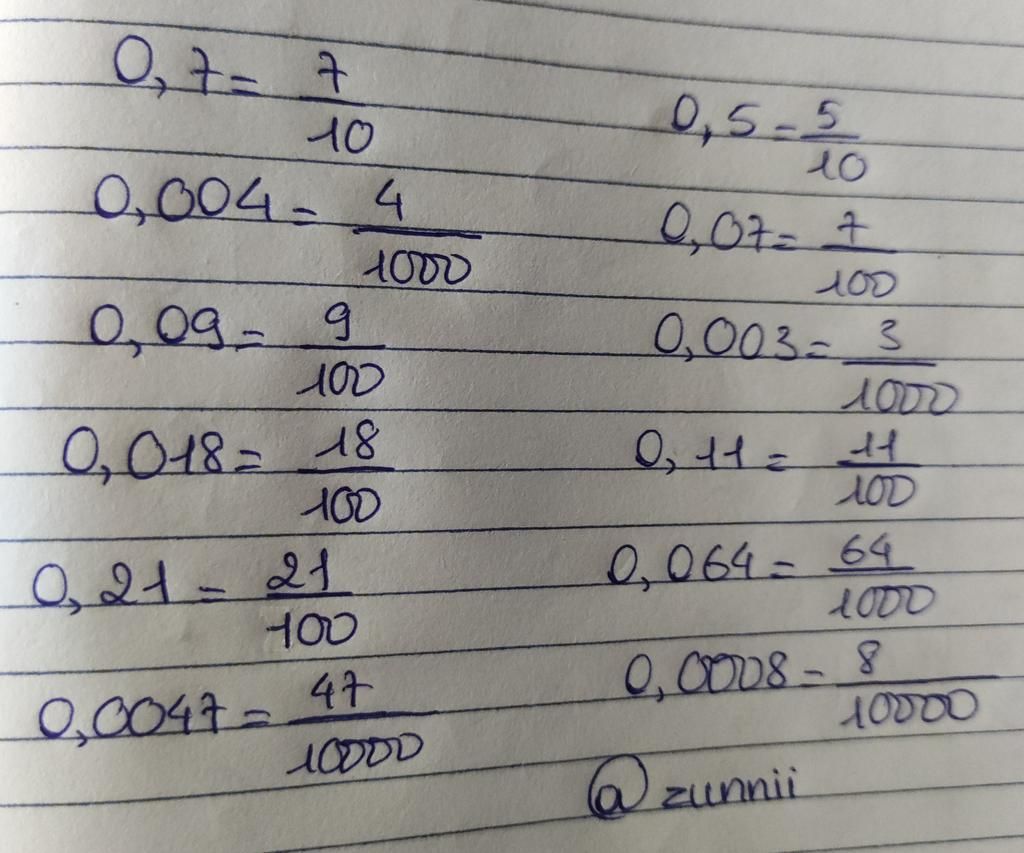 0,7 = 7/10
0,5 = 5/10
0,004 = 4/1000
0,07 = 7/100
0,09 = 9/100
0,003 = 3/1000
0,018 = 18/100
0,11 = 11/100
0,21 = 21/100
0,064 = 64/1000
0,0047 = 47/10000
0,0008 = 8/10000
@zunnii